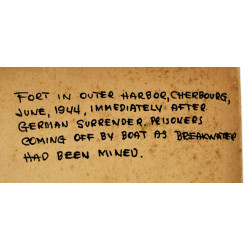 FORT IN OUTER HARBOR, CHERBOURG,
JUNE, 1944, IMMEDIATELY AFTER
GERMAN SURRENDER. PRISONERS
COMING OFF BY BOAT AS BREAKWATER
HAD BEEN MINED.